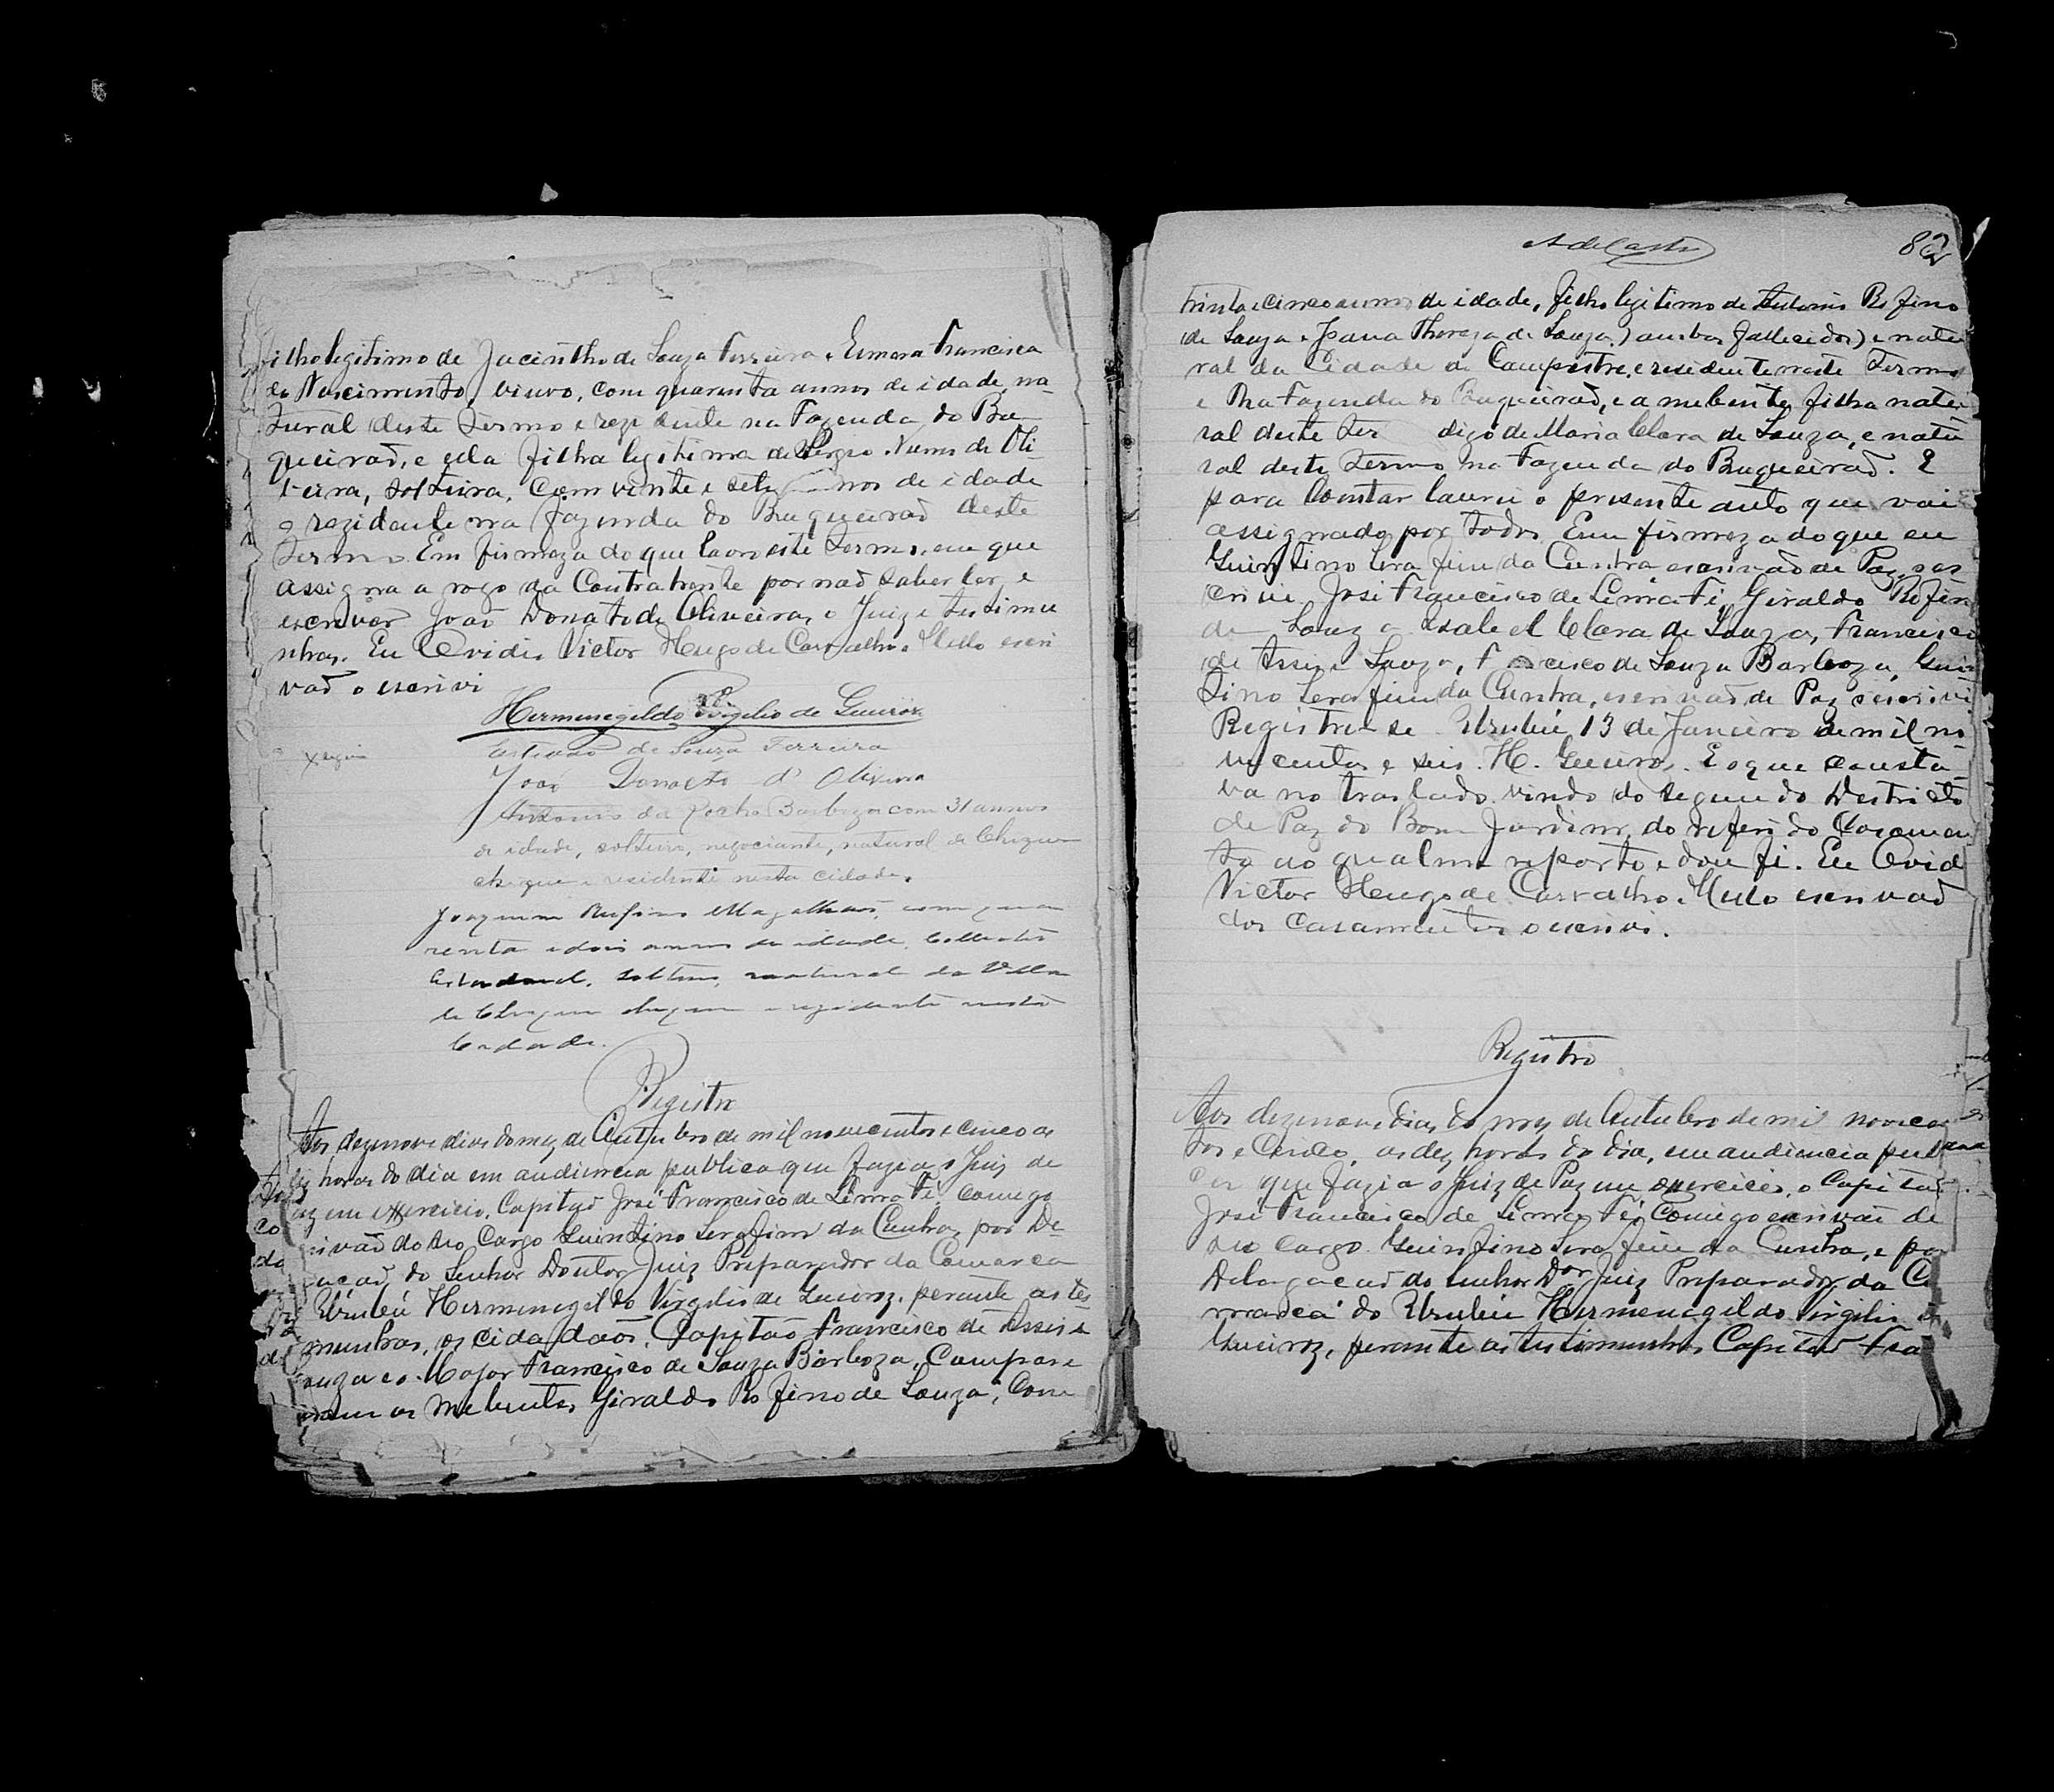 filho legitimo de Jacinthode Souza Ferreira e Francisca
do Nascimento, viuvo, com quarenta annos de idade, na-
tural deste Termo e rezidente na Fazenda do Bu-
queirão, e ella filha legitima de Sergio Nunes de Oli-
veira, solteira, com vinte e sete annos de idade
e rezidente na fazenda do Buqueirão deste
Termo. Em firmeza do que lavro este termo, em que
assigna a rogo da Contrahente por não saber ler e
escrever João Donato de Oliveira, o Juiz e testimu
nhas. Eu Ovidio Victor Hugo de Carvalho Mello escri
vão o escrivi
Hermenegildo Virgilio de Queiroz
de Souza Ferreira
João Donato d' Oliveira
Antonio da Rocha Barboza com 31 annos
de idade, solteiro, negociante, natural de Chique
chique e residente nesta cidade.
Joaquim Rufino Magalhães, com qua
renta e dois annos de idade, Collector
Estadoal, solteiro, natural da Villa
de Chique chique e rezidente nesta
Cidade.
Registro
Aos dezenove dias do mez de Outubro de mil novecentos e cinco as
dez horas do dia em audiencia publica que fazia o Juiz de
Paz em exercicio, Capitão José Francisco de Lima Fé, comigo
escrivão do seo Cargo Quintino Serafim da Cunha, por De-
legação do Senhor Doutor Juiz Preparador da Comarca
Urubú Hermenegildo Virgilio de Queiroz, perante as tes-
temunhas, os cidadãos Capitão Francisco de Assis e
Souza e o Major Francisco de Souza Barboza, Compare
ceram os nubentes Giraldo Rofino de Souza, Com
A de Castro
82
trinta e cinco annos de idade, filho legitimo de Antonio Rofino
de Souza e Joana Thereza de Souza, (ambos fallecidos) e natu
ral da Cidade de Campestre, e residente neste Termo
e na Fazenda do Buqueirão, e a nubente, filha natu
ral deste Ter digo de Maria Clara de Souza, e natu
ral deste Termo na Fazenda do Buqueirão. E
para Constar lavrei o presente auto que vai
assignado por todos. Em firmeza do que eu
Quintino Serafim da Cunha escrivão de Paz, o es
crivi. José Francisco de Lima Fé, Giraldo Rofino
de Souza Izabel Clara de Souza, Francisco
de Assis e Souza, Francisco de Souza Barboza, Quin
tino Serafim da Cunha, escrivão de Paz o escrivi
Registre-se Urubú, 13 de Janeiro de mil no
vecentos e seis. H. Queiroz. E o que consta
va no traslado vindo do segundo Destricto
de Paz do Bom Jardim, do referido Casamen
to ao qual me reporto e dou fé. Eu Ovidio
Victor Hugo de Carvalho Mello escrivão
dos Casamentos o escrivi.
Registro
Aos dezenove dias do mez de Outubro de mil novecen
tos e Cinco, as dez horas do dia, em audiencia
que fazia o Juiz de Paz em exercicio, o Capitão
José Francisco de Lima Fé, Comigo escrivão de
seo cargo Quintino Serafim da Cunha, e por
Delegacão do Senhor Dor Juiz Preparador da Co
marca do Urubú Hermenegildo Virgilio de
Queiroz, perante as testimunhas Capitão Fran